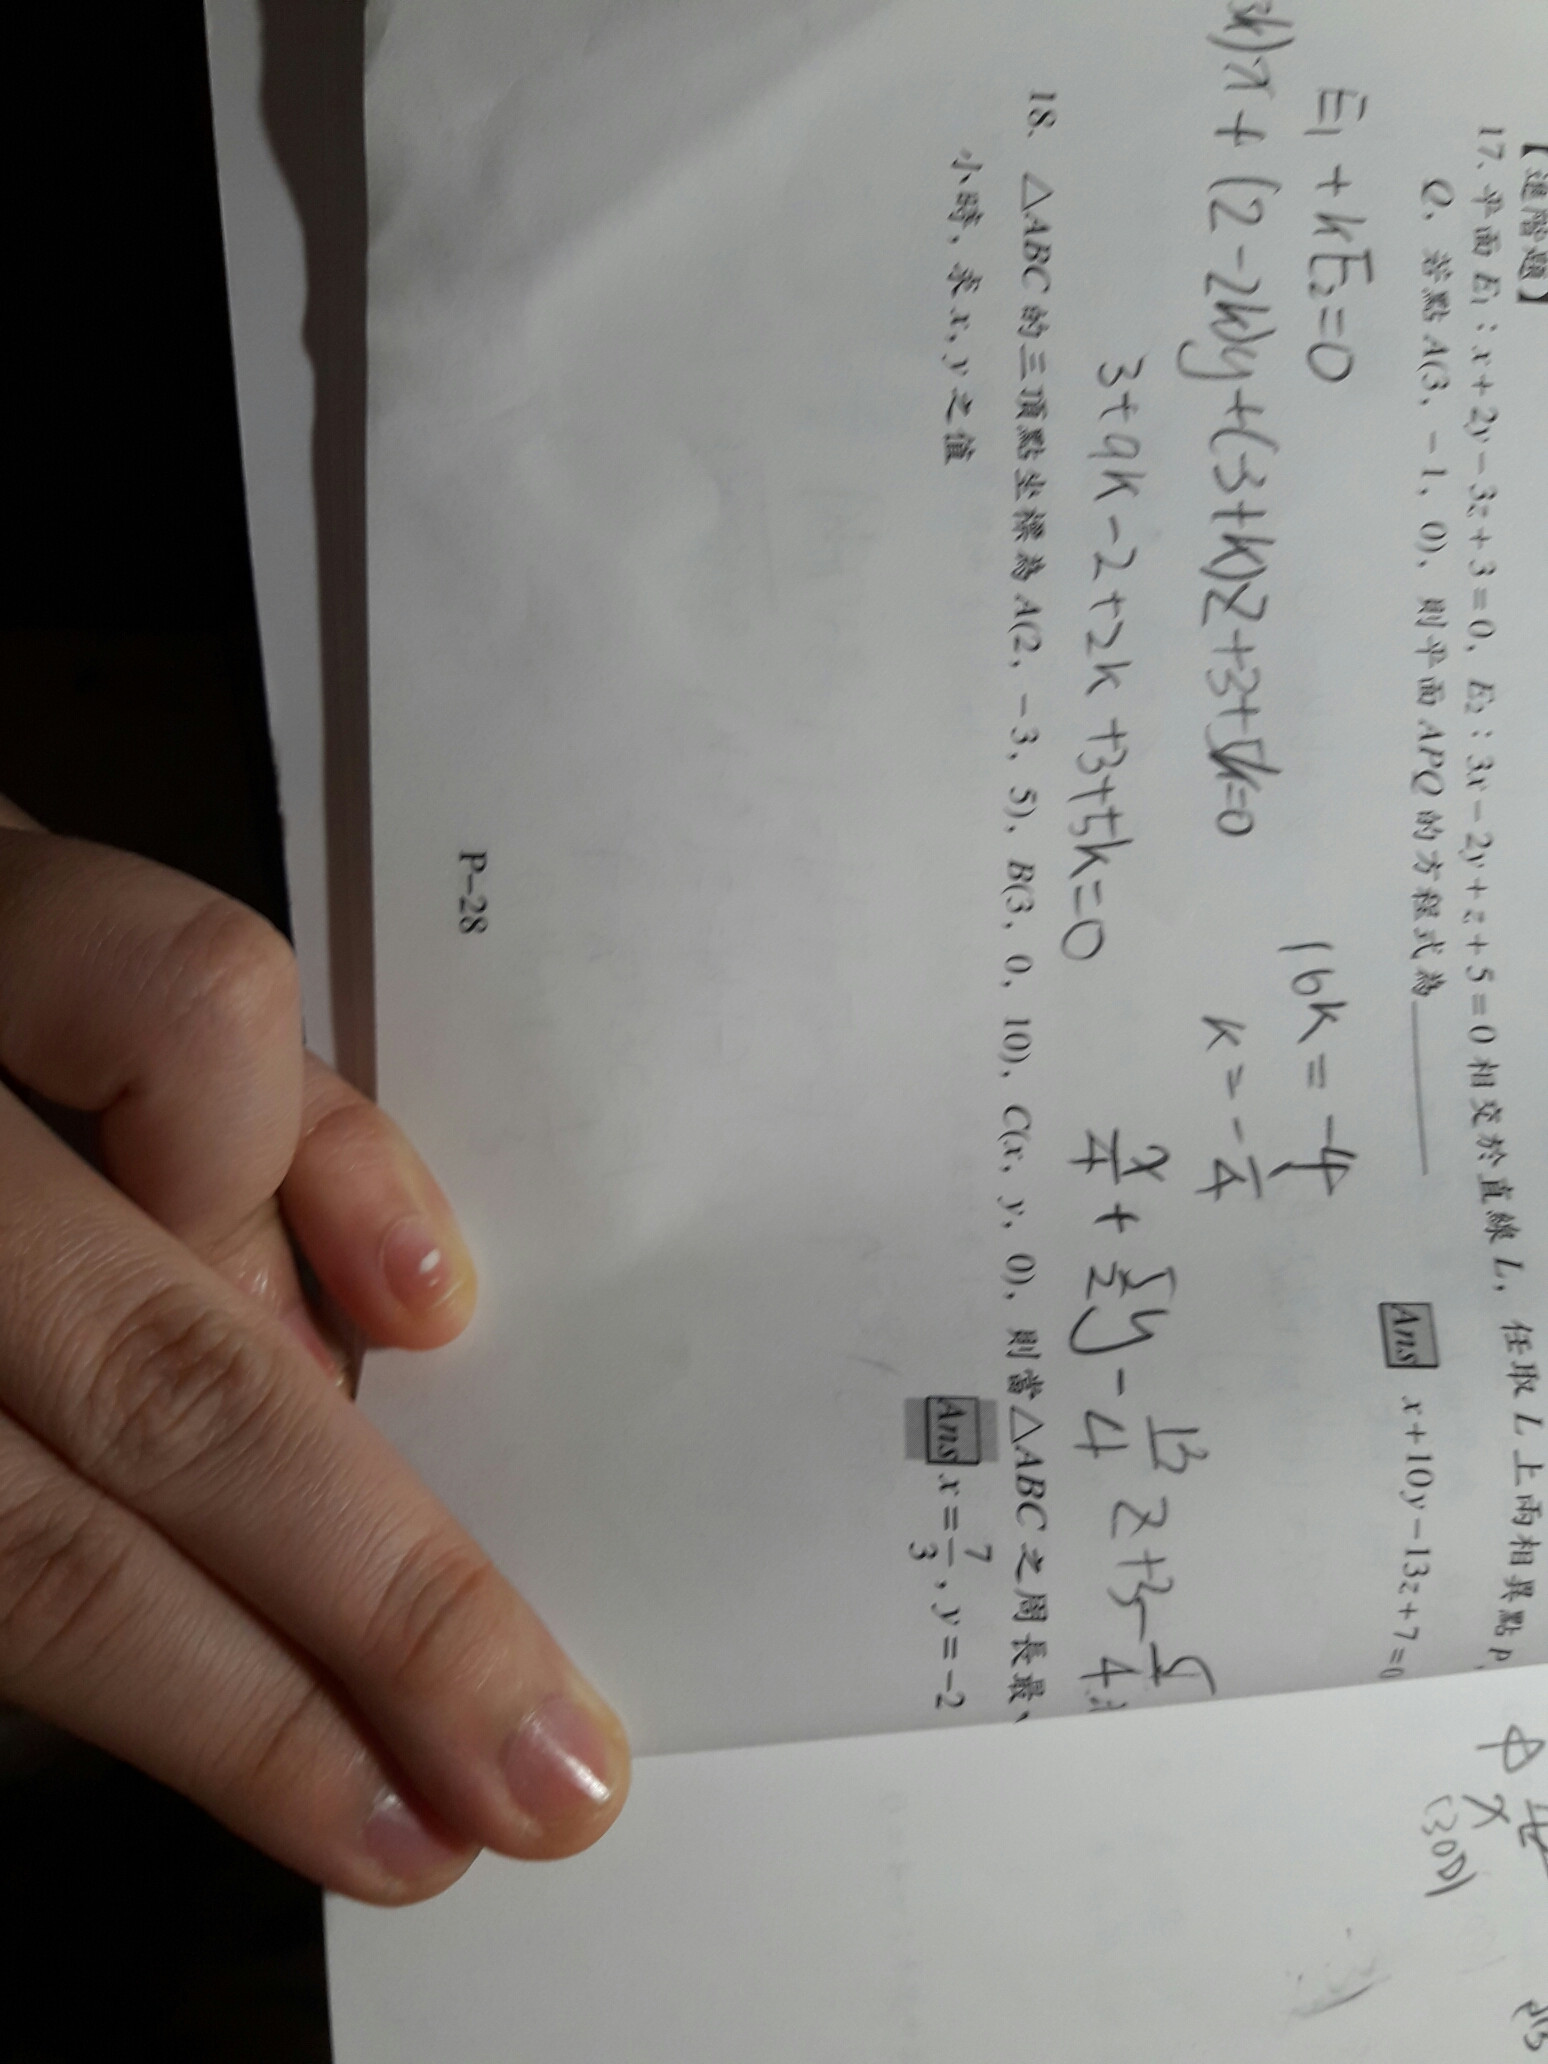 【進階題】
17、平面 E₁：x＋2y－3z＋3＝0，E₂：3x－2y＋z＋5＝0 相交於直線 L，任取 L 上兩相異點 P,
Q，若點 A(3，－1，0)，則平面 APQ 的方程式為________
Ans x＋10y－13z＋7＝0
E₁+kE₂=0
16k=-4
3k)x+(2-2k)y+(-3+k)z+3+5k=0
k=-1/4
3+9k-2+2k+3+5k=0
x/4+5/2y-13/4z+3-5/4
18、△ABC 的三頂點坐標為 A(2，－3，5)，B(3，0，10)，C(x，y，0)，則當△ABC 之周長最
小時，求 x，y 之值
Ans x＝7/3，y＝－2
P–28
x
(300)